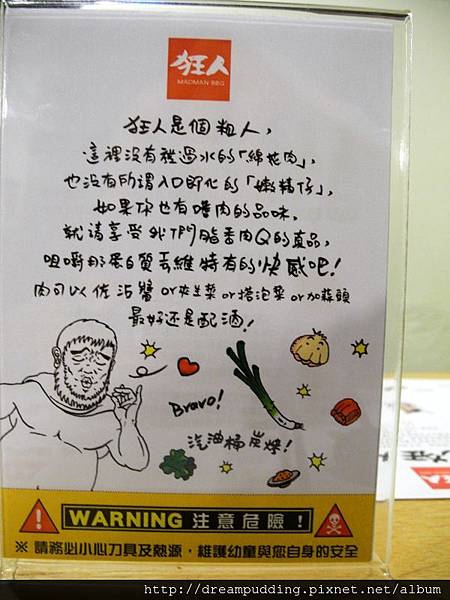 狂人
MADMAN BBQ
狂人是個粗人,
這裡沒有發過水的「綿花肉」,
也沒有所謂入口即化的「嫩精仔」,
如果你也有嗜肉的品味,
就請享受我們脂香肉Q的真品,
咀嚼那蛋白質纖維特有的快感吧!
肉可以佐沾醬or夾生菜or搭泡菜or加蒜頭
最好還是配酒!
Bravo!
汽油桶炭烤!
WARNING 注意危險!
※ 請務必小心刀具及熱源,維護幼童與您自身的安全
狂人
http://dreampudding.pixnet.net/album